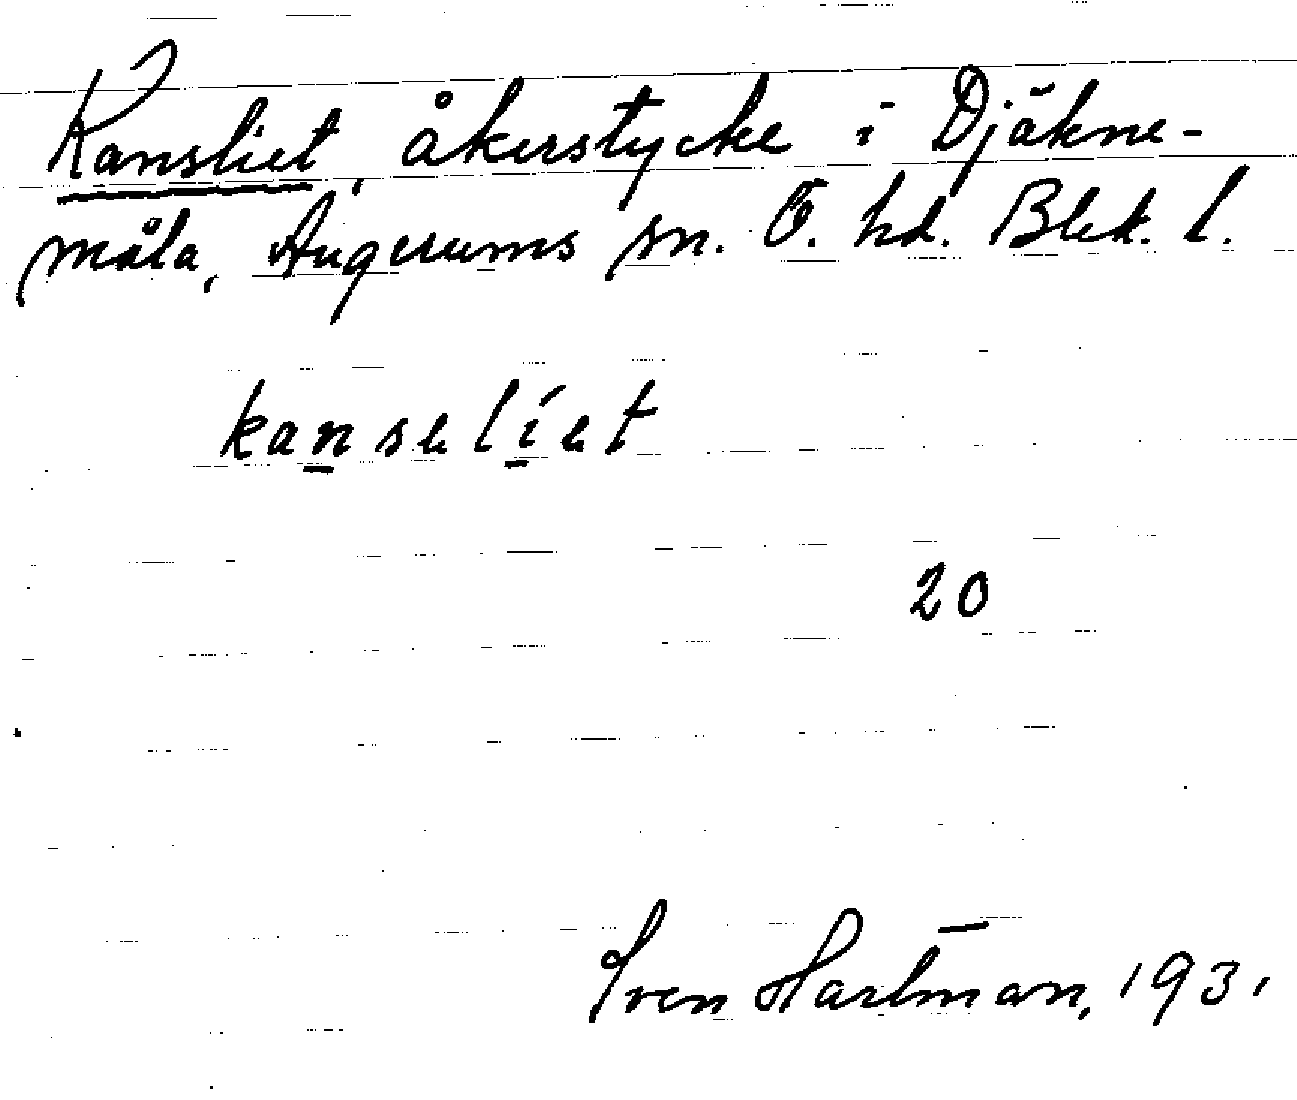 Kansliet, åkerstycke i Djäkne-
måla, Augerums sn. Ö. hd. Blek. l.
kanselíet
20
Sven Hartman, 1931